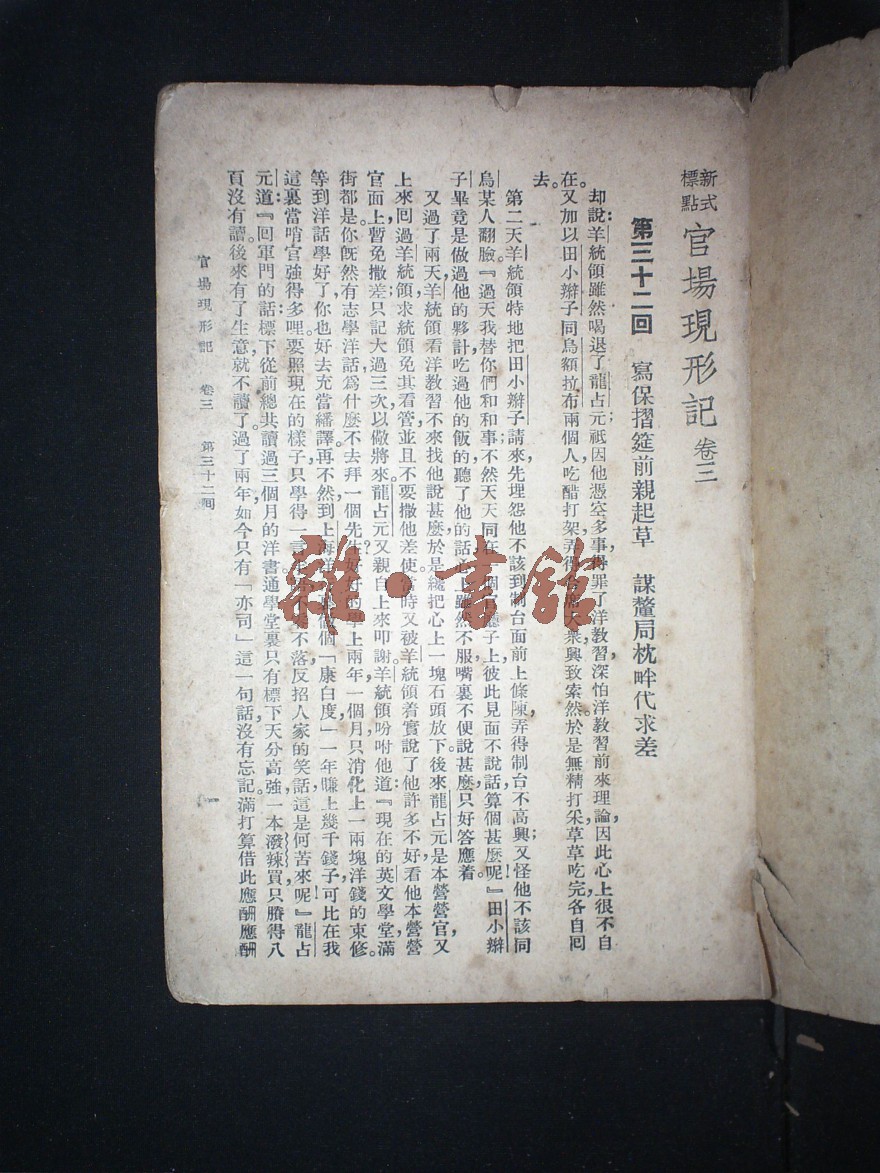 新式標點 官場現形記 卷三
第三十二回 寫保摺筵前親起草 謀釐局枕畔代求差
却說:羊統領雖然喝退了龍占元,祇因他憑空多事,得罪了洋教習,深怕洋教習前來理論,因此心上很不自
在。又加以田小辮子同烏額拉布兩個人吃醋打架,弄得合席大衆興致索然,於是無精打采,草草吃完,各自回
去。
第二天,羊統領特地把田小辮子請來,先埋怨他不該到制台面前上條陳,弄得制台不高興;又怪他不該同
烏某人翻臉。『過天我替你們和和事;不然,天天同在一個子上,彼此見面不說話,算個甚麼呢!』田小辮
子畢竟是做過他的夥計,吃過他的飯的,聽了他的話,心上雖然不服,嘴裏不便說甚麼,只好答應着。
又過了兩天,羊統領看洋教習不來找他說甚麼,於是纔把心上一塊石頭放下。後來龍占元是本營營官,又
上來回過羊統領,求統領免其看管,並且不要撒他差使。當時又被羊統領着實說了他許多不好,看他本營營
官面上,暫免撒差,只記大過三次,以儆將來。龍占元又親自上來叩謝。羊統領吩咐他道:『現在的英文學堂滿
街都是。你旣然有志學洋話,爲什麼不去拜一個先生,好好的學上兩年?一個月只消化上一兩塊洋錢的束修。
等到洋話學好了,你也好去充當繙譯。再不然,到上海洋個「康白度」,一年賺上幾千錢子,可比在我
這裏當哨官強得多哩。要照現在的樣子,只學得一言不落,反招人家的笑話,這是何苦來呢!』龍占
元道:『回軍門的話:標下從前總共讀過三個月的洋書,通學堂裏只有標下天分高強,一本潑辣買只賸得八
頁沒有讀。後來有了生意,就不讀了。過了兩年,如今只有「亦司」這一句話沒有忘記。滿打算借此應酬應酬
官場現形記 卷三 第三十二回
一
雜·書館